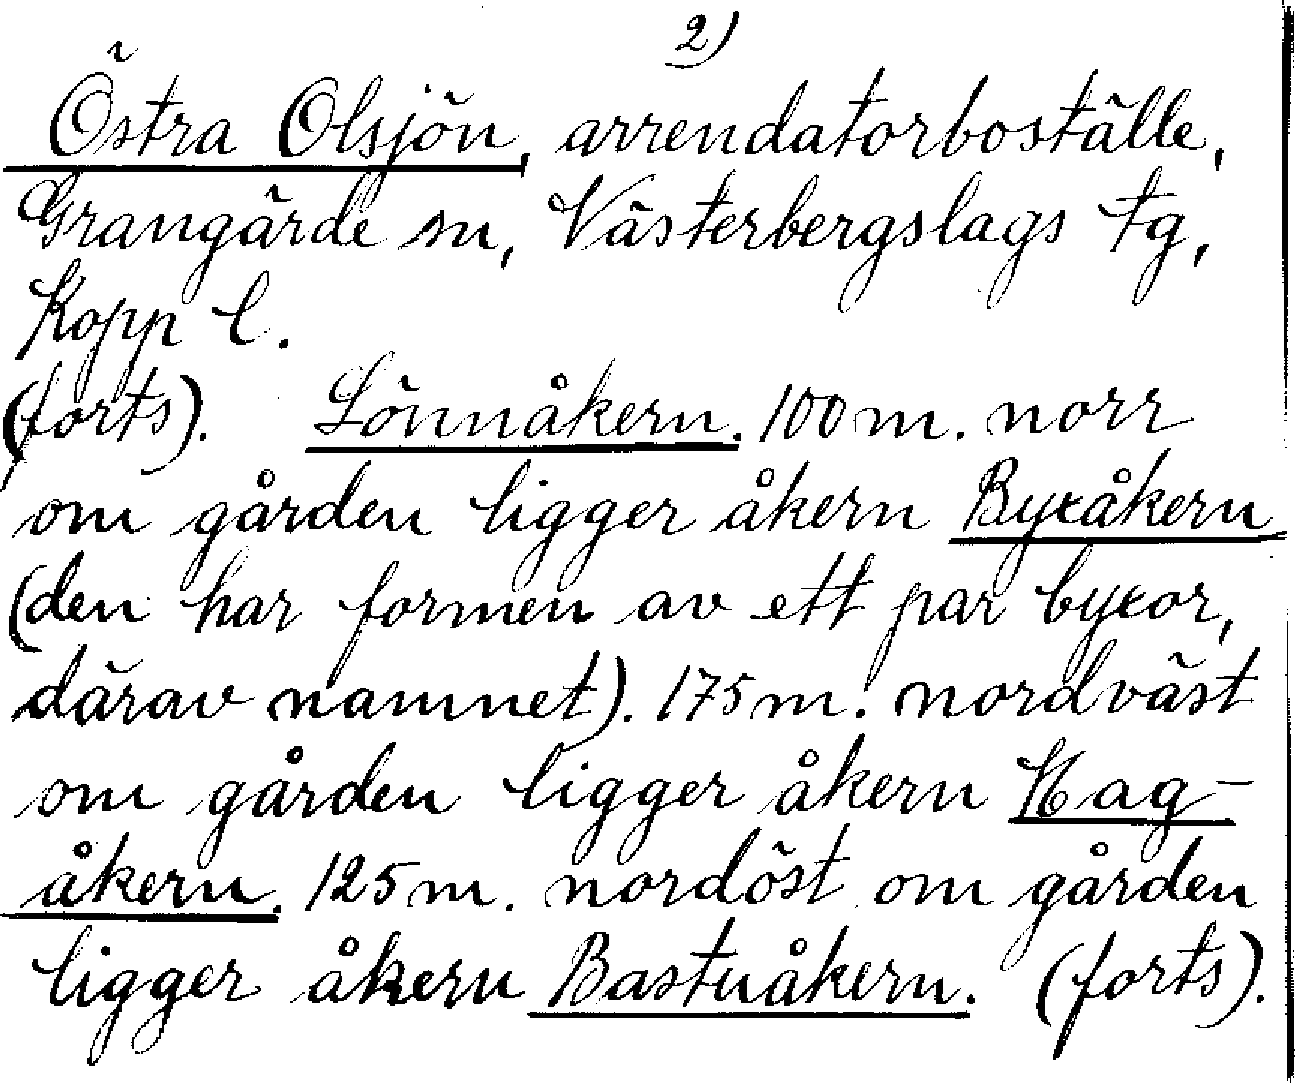 2)
Östra Olsjön, arrendatorboställe,
Grangärde sn, Västerbergslags tg,
Kopp l.
(forts). Lönnåkern. 100 m. norr
om gården ligger åkern Byxåkern
(den har formen av ett par byxor,
därav namnet). 175 m. nordväst
om gården ligger åkern Hag-
åkern. 125 m. nordöst om gården
ligger åkern Bastuåkern. (forts).